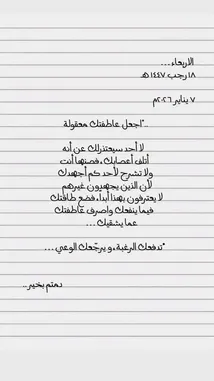 الاربعاء ...
١٨ رجب ١٤٤٧ هـ
٧ يناير ٢٠٢٦م
.."اجعل عاطفتك معقولة
لا أحد سيعتذر لك عن أنه
أتلف أعصابك ، فصنها أنت
ولا تشرح لأحد كم أجهدك
لأن الذين يجهدون غيرهم
لا يعترفون بهذا أبدا ، فضع طاقتك
فيما ينفعك واصرف عاطفتك
عما يشقيك ...
"تدفعك الرغبة ، و يرجّعك الوعي ...
دمتم بخير ..